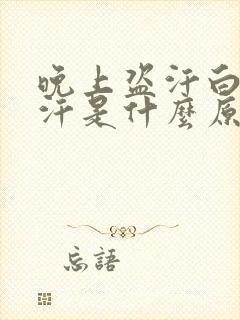 晚上盗汗白
汗是什麼原
忘語